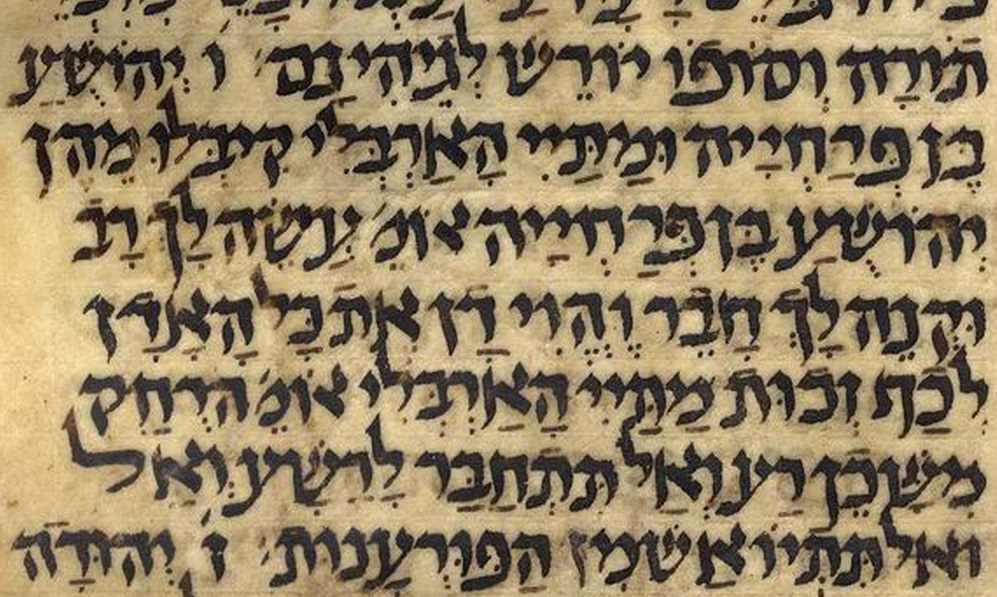 תּוֹרָה וְסוֹפּוֹ יוֹרֵשׁ לְגֵיהִינָּם ו יְהוֹשֻׁעַ
בֶּן פְּרַחְיָיה וּמַתַּיי הָאַרְבֵּלִי קִיבְּלוּ מֵהֶן
יְהוֹשֻׁעַ בֶּן פְּרַחְיָיה אומ עֲשֵׂה לְךָ רַב
וּקְנֵה לְךָ חָבֵר וֶהֱוֵי דָן אֶת כָּל הָאָדָן
לְכַף זְכוּת מַתַּיי הָאַרְבֵּלִי אומ הַרְחֵק
מִשָּׁכֵן רַע וְאַל תִּתְחַבֵּר לָרָשָׁע וְאַל
וְאַל תִּתְיוֹאַשׁ מִן הַפּוּרְעָנוּת ז יְהוּדָה